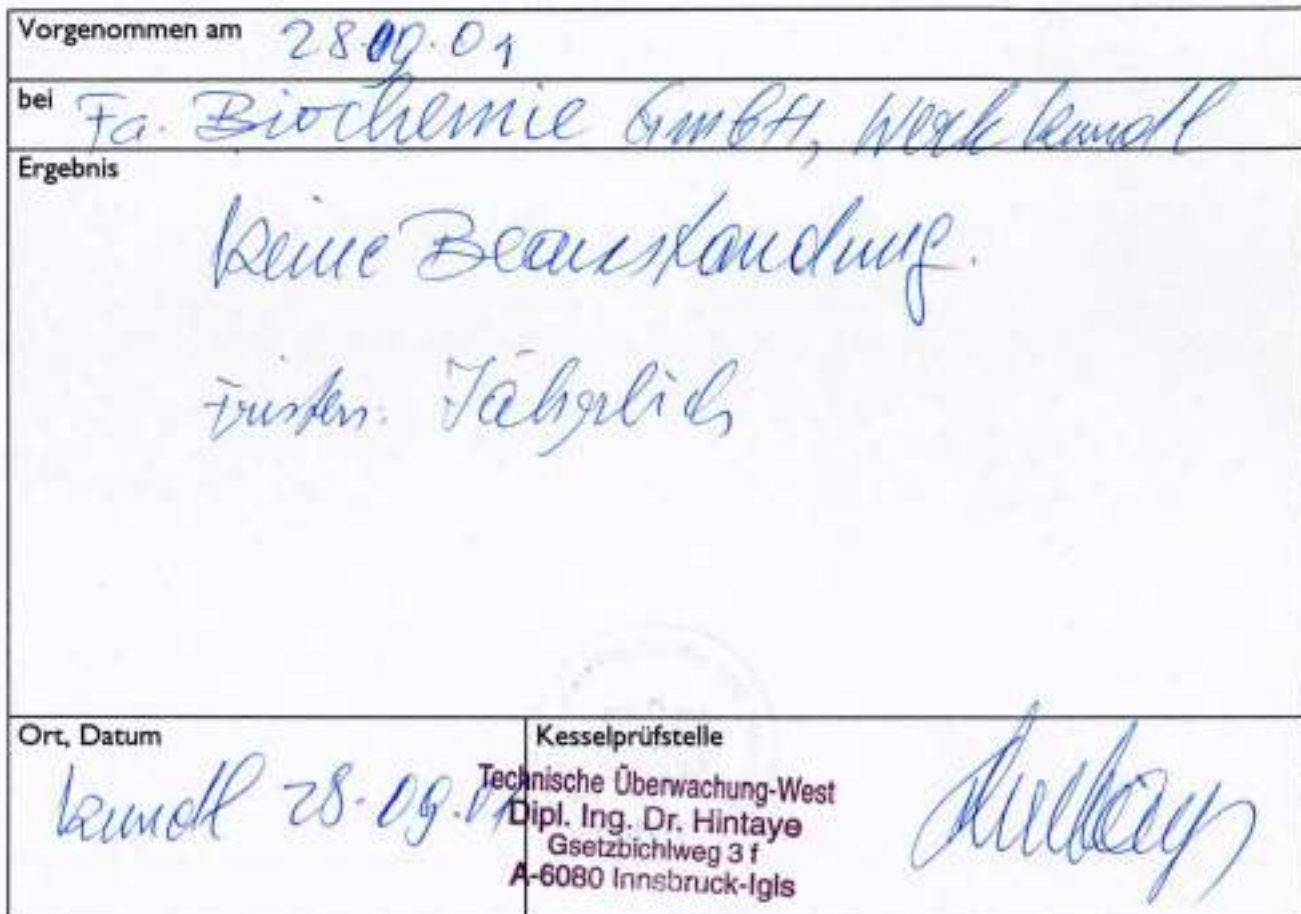 Vorgenommen am 28.09.01
bei Fa. Biochemie GmbH, Werk Kundl
Ergebnis
Keine Beanstandung.
Fristen: Jährlich
Ort, Datum
Kundl 28.09.01
Kesselprüfstelle
Technische Überwachung-West
Dipl. Ing. Dr. Hintaye
Gsetzbichlweg 3 f
A-6080 Innsbruck-Igls